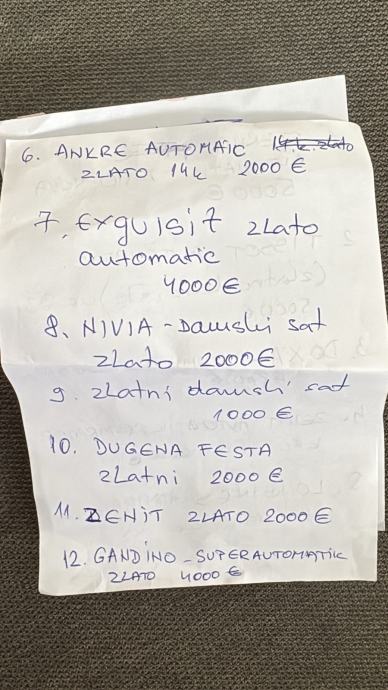 6. ANKRE AUTOMATIC 14.k.zlato
ZLATO 14k 2000 €
7. Exguisit zlato
automatic
4000 €
8. NIVIA - Damski sat
zlato 2000 €
9. zlatni damski sat
1000 €
10. DUGENA FESTA
zlatni 2000 €
11. ZENIT ZLATO 2000 €
12. GANDINO - SUPERAUTOMATIK
ZLATO 4000 €